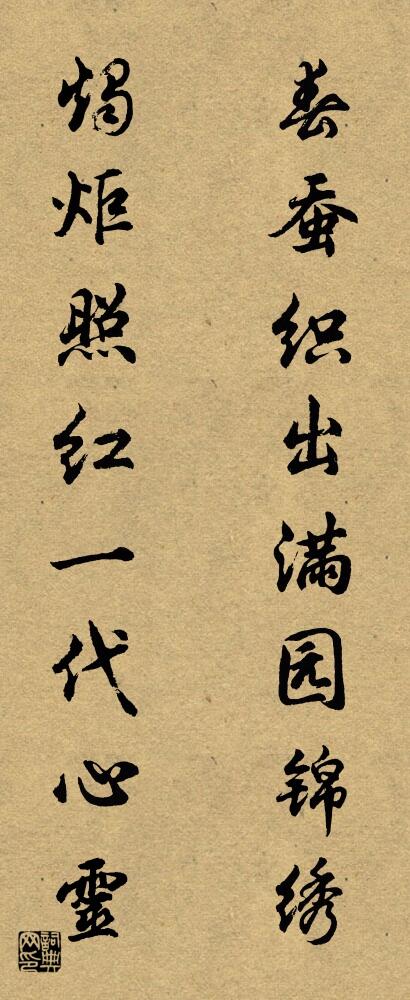 春蚕织出满园锦绣
烛炬照红一代心靈
詞典网印